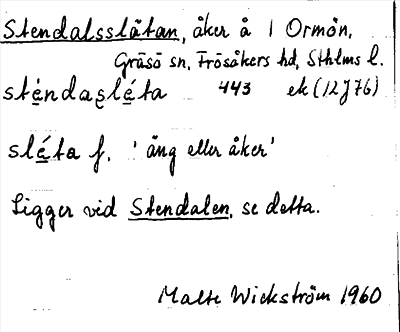 Stendalsslätan, åker å 1 Ormön,
Gräsö sn, Frösåkers hd, Sthlms l.
sténdasléta 443 ek (12J76)
sléta f. 'äng eller åker'
Ligger vid Stendalen, se detta.
Malte Wickström 1960